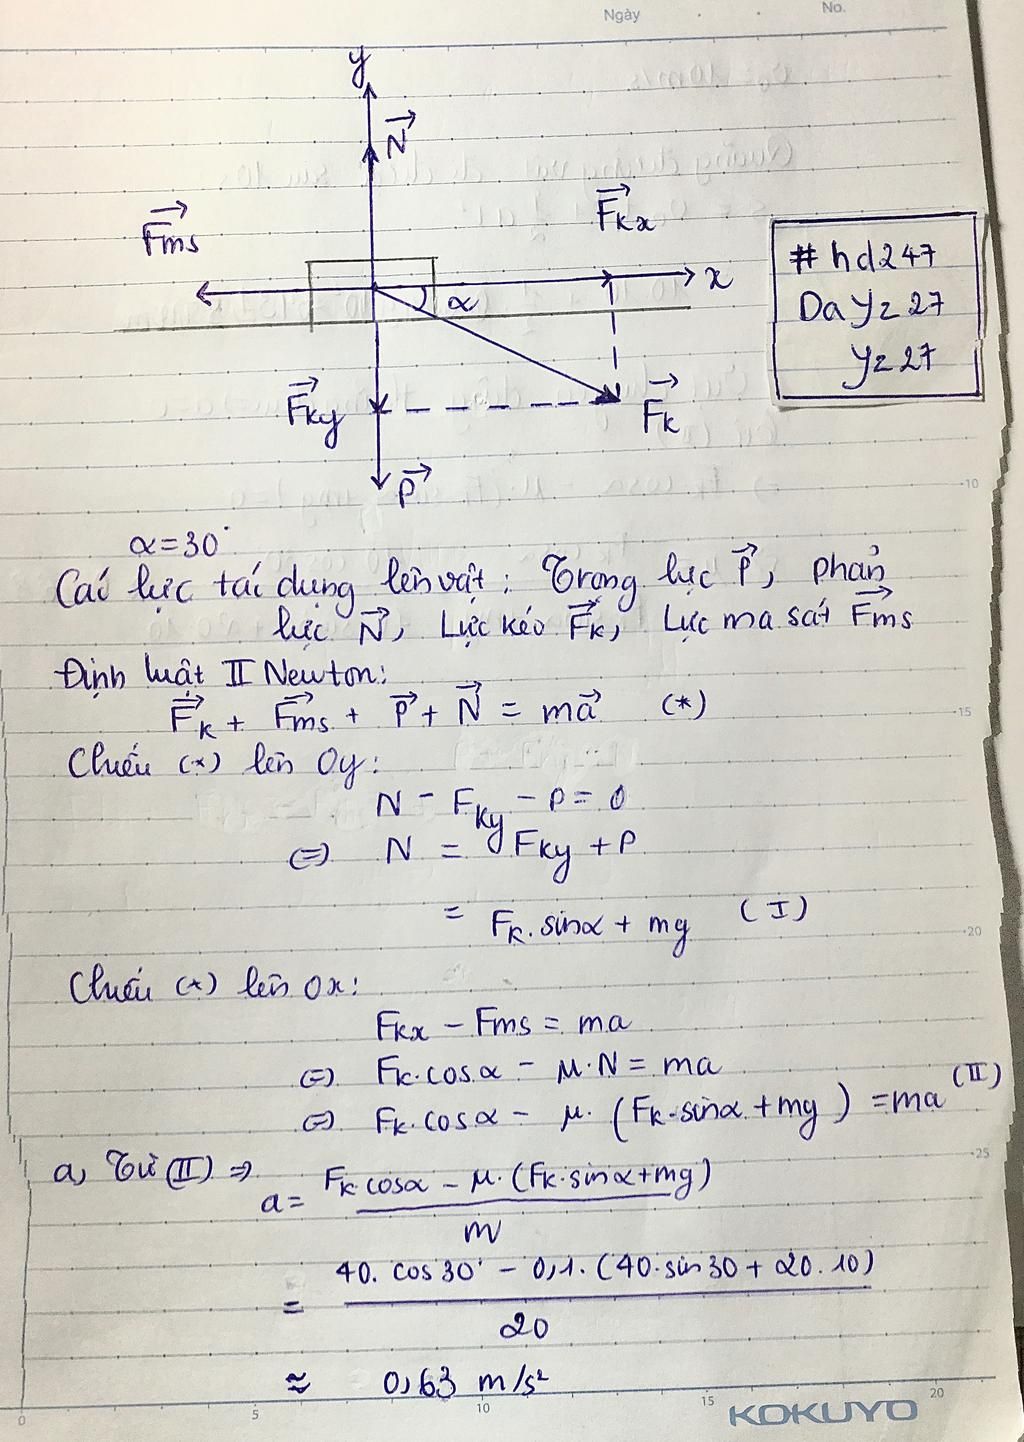 Ngày
No.
y
N
Fms
Fkx
x
α
# hd247
Dayz27
yz27
Fky
Fk
P
α=30°
Các lực tác dụng lên vật: Trọng lực P, phản
lực N, Lực kéo Fk, Lực ma sát Fms
Định luật II Newton:
Fk + Fms + P + N = ma (*)
Chiếu (*) lên Oy:
N - Fky - P = 0
(=) N = Fky + P
= Fk.sinα + mg (I)
Chiếu (*) lên Ox:
Fkx - Fms = ma
(=) Fk.cosα - μ.N = ma
(=) Fk.cosα - μ.(Fk.sinα + mg) = ma (II)
a, Từ (II) =>
a = Fk.cosα - μ.(Fk.sinα+mg)
m
= 40. cos30° - 0,1.(40.sin30 + 20.10)
20
≈ 0,63 m/s²
10
15
20
25
0 5 10 15 20
KOKUYO